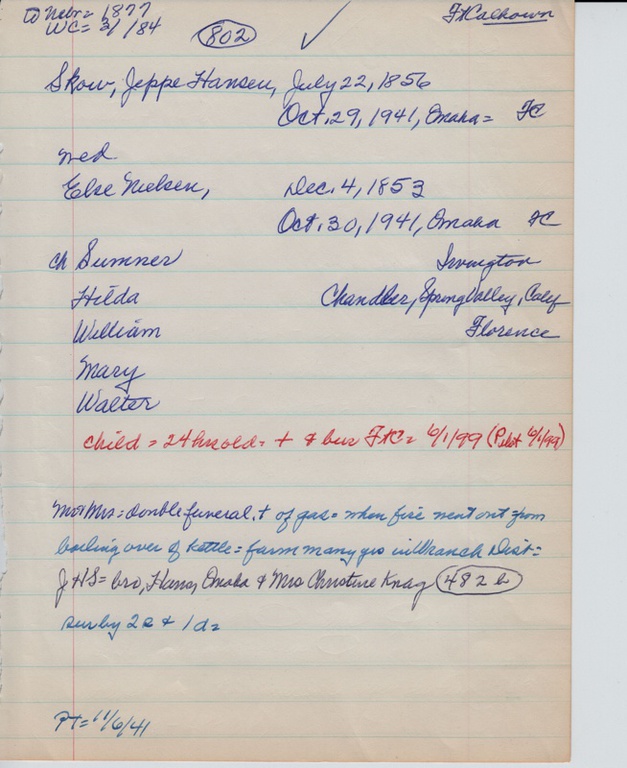 to Nebr= 1877 Ft Calhoun
WC= 3/1/84 802 ✓
Skow, Jeppe Hansen, July 22, 1856
Oct. 29, 1941, Omaha= FC
med
Else Nielsen, Dec. 4, 1853
Oct. 30, 1941, Omaha FC
ch Sumner Irvington
Hilda Chandler, Spring Valley, Calif
William Florence
Mary
Walter
child = 24 hrs old= + & bur FtC= 6/1/99 (Pilot 6/1/99)
Mr & Mrs= double funeral. + of gas= when fire went out from
boiling over of kettle= farm many yrs in Branch Dist=
JHS= bro, Hans, Omaha & Mrs Christine Knag 482 b
sur by 2s & 1d=
PT= 11/6/41